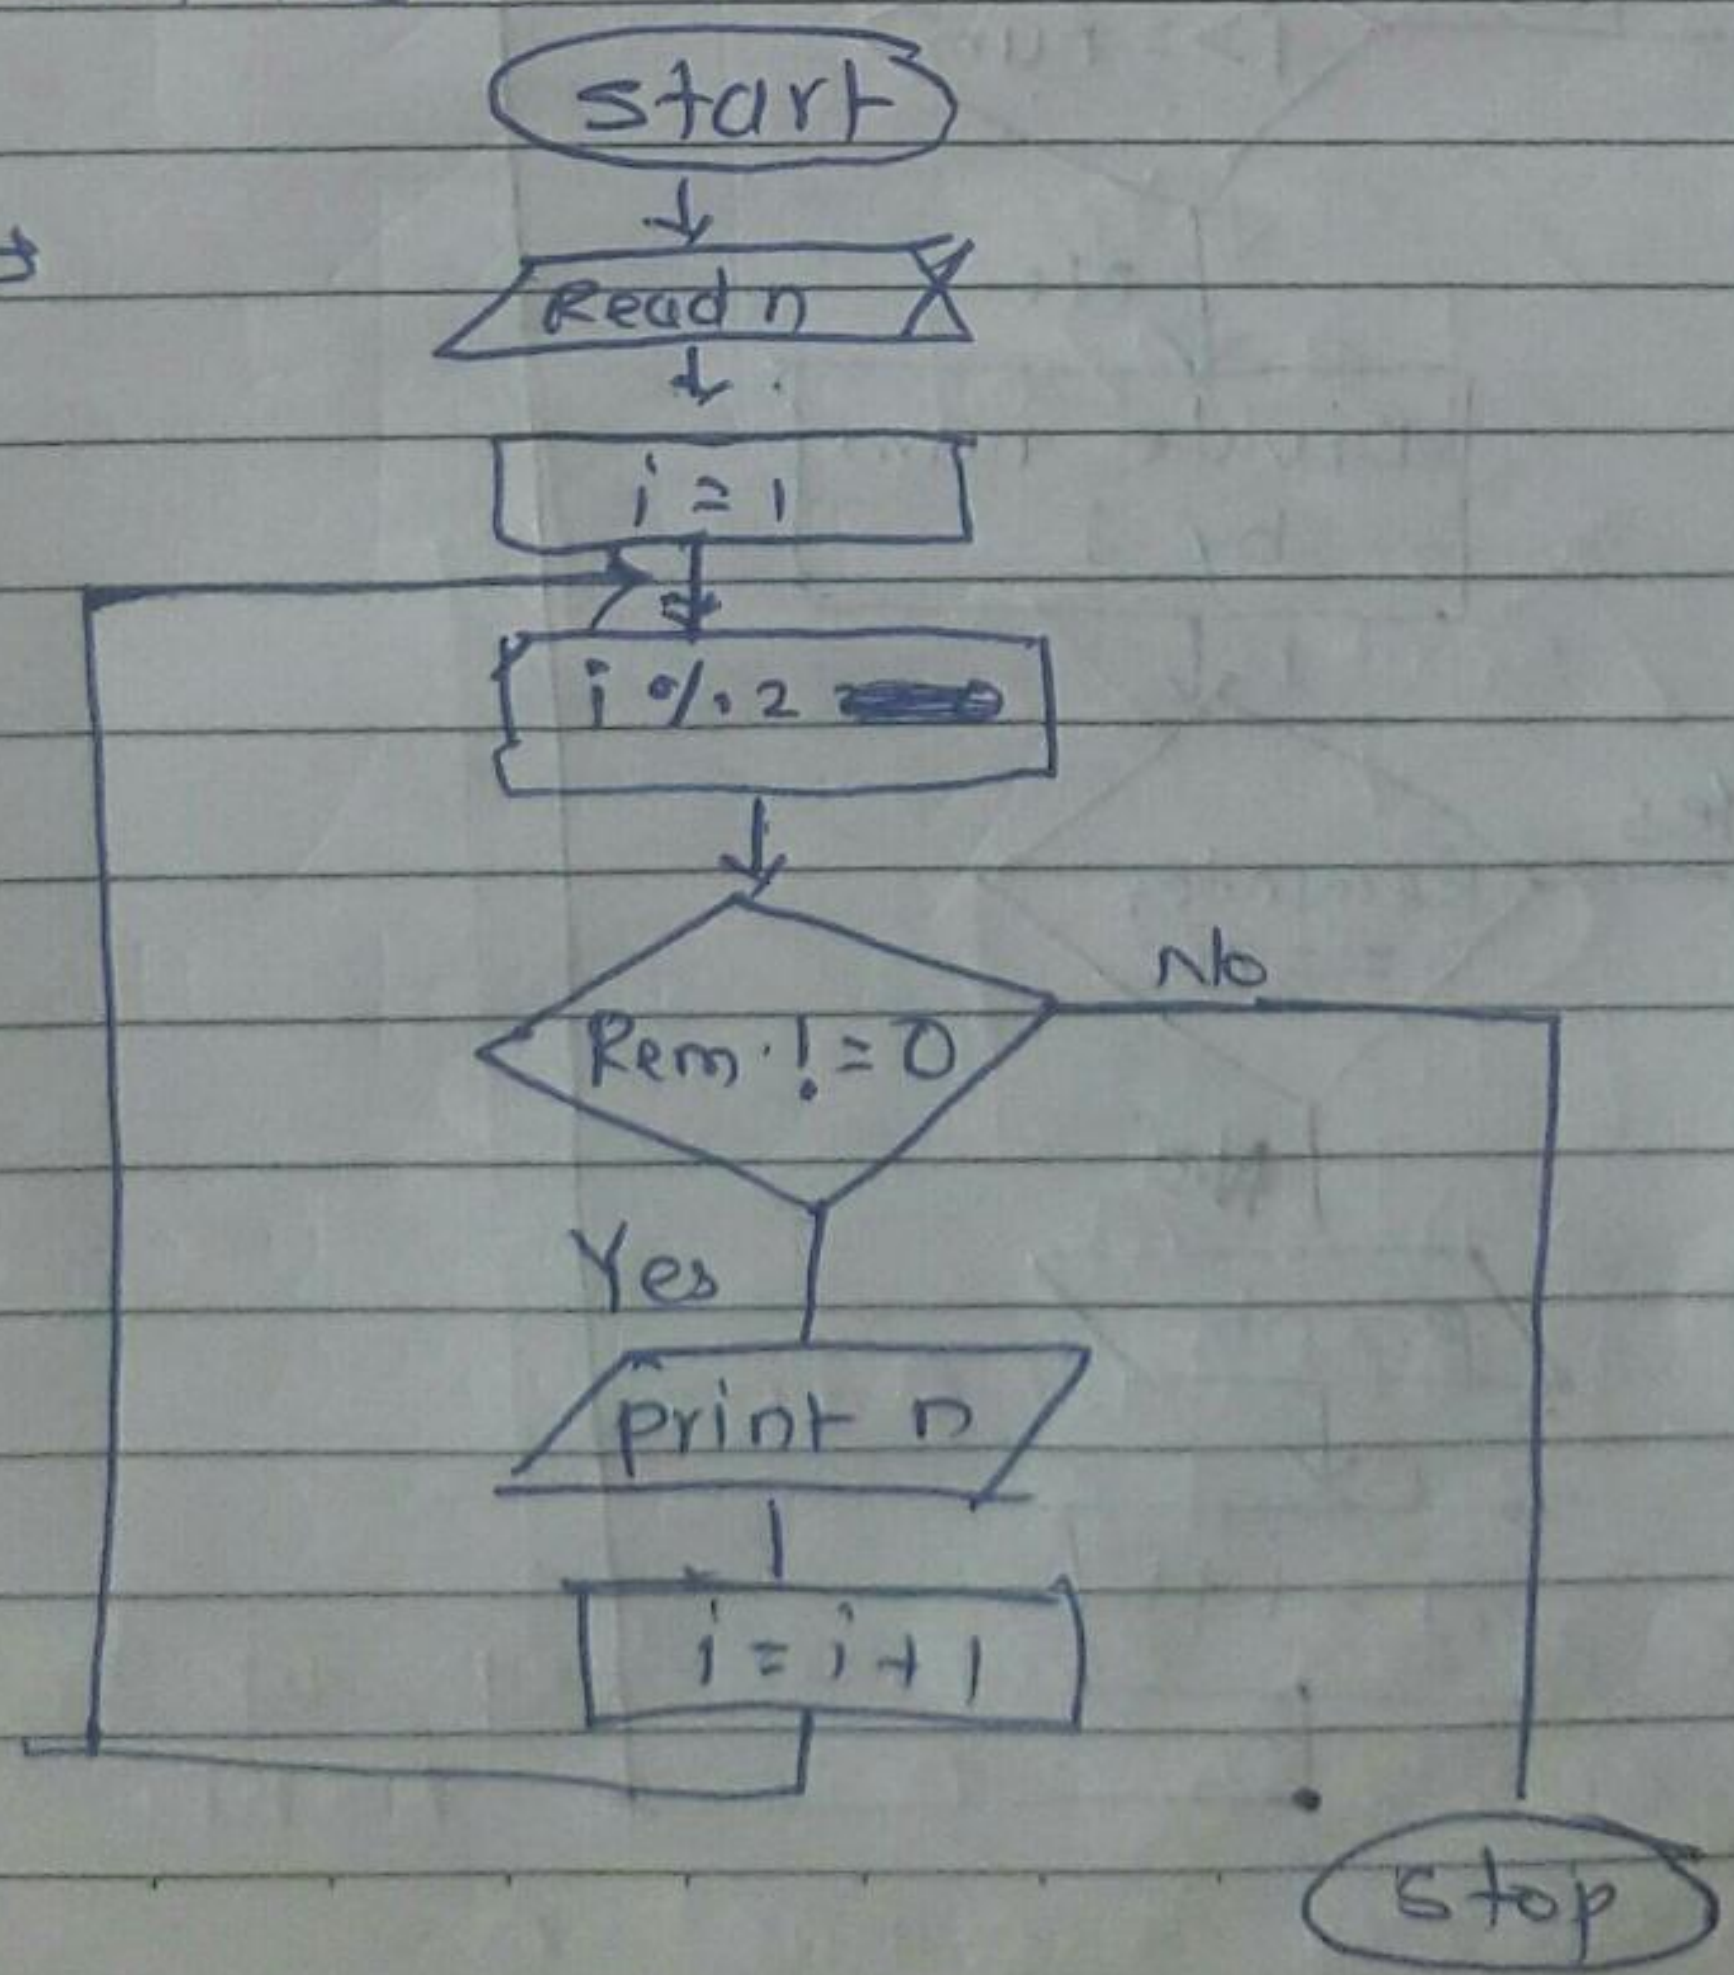 start
Read n
i = 1
i % 2
No
Rem != 0
Yes
print n
i = i + 1
stop